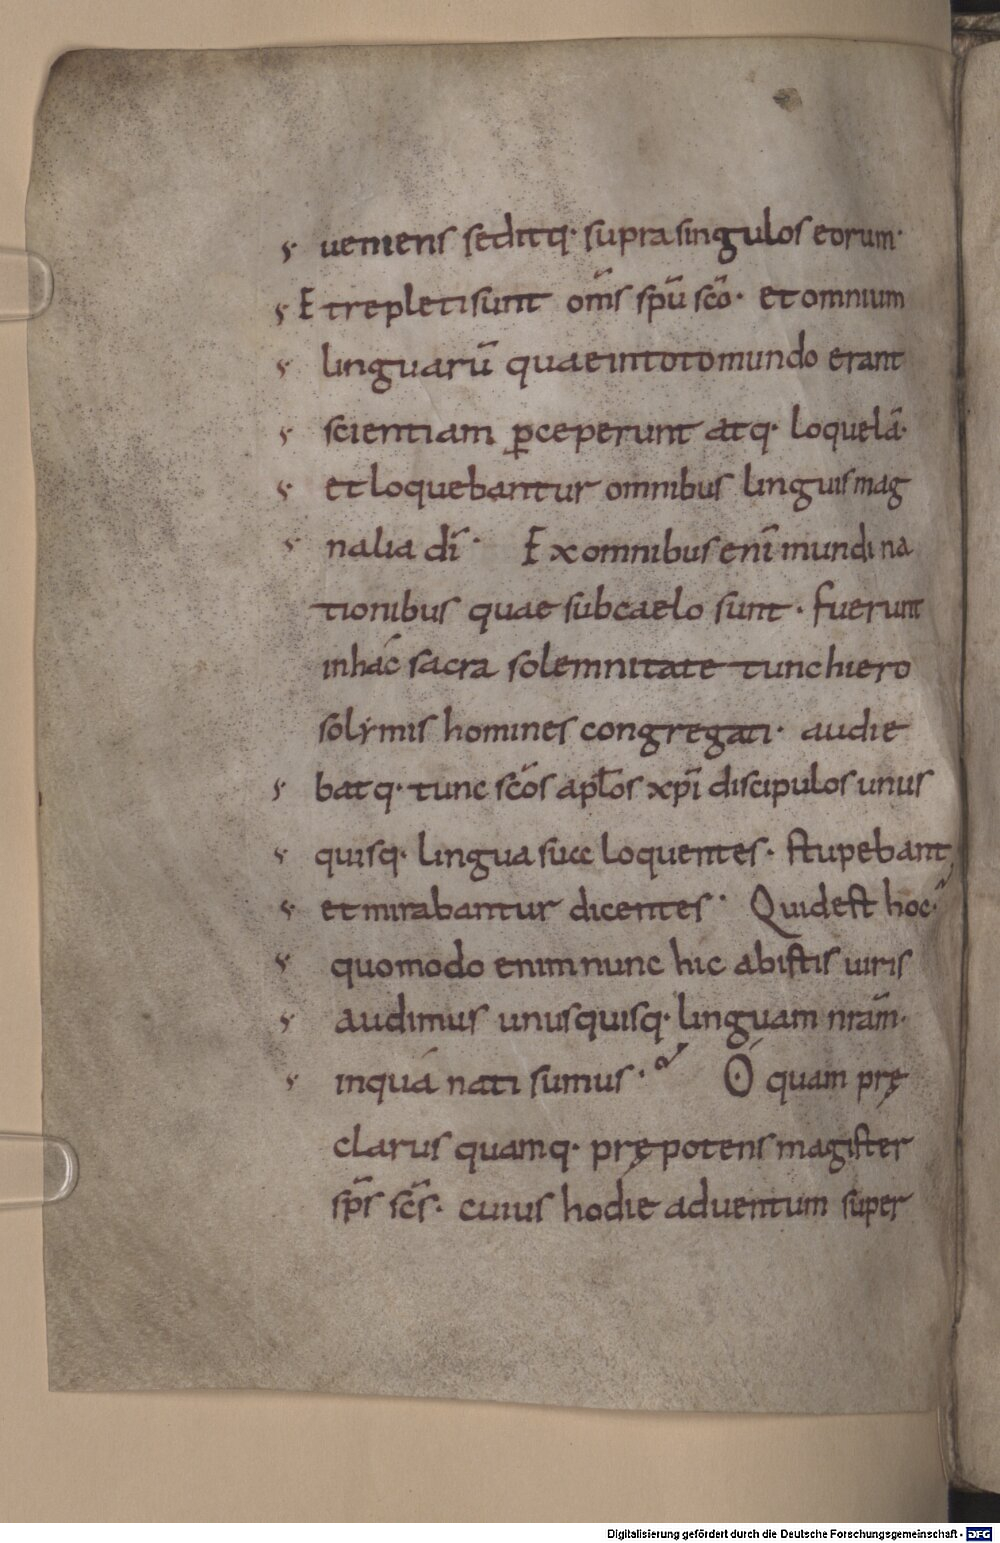 ueniens seditq· supra singulos eorum·
Et repleti sunt om̄s sp̄u sc̄o· et omnium
linguarū quae in toto mundo erant
scientiam p̱ceperunt atq· loquelā·
et loquebantur omnibus linguis mag
nalia dī· Ex omnibus enī mundi na
tionibus quae sub caelo sunt· fuerunt
in hác sacra solemnitate tunc hiero
solẏmis homines congregati· audie
batq· tunc sc̄os apl̄os xp̄i discipulos unus
quisq· lingua sua loquentes· stupebant
et mirabantur dicentes· Quid est hoc·
quomodo enim nunc hic ab istis uiris
audimus unusquisq· linguam nrām·
in quá nati sumus· Ó quam prę
clarus quamq· prępotens magister
sp̄s sc̄s· cuius hodie aduentum super
Digitalisierung gefördert durch die Deutsche Forschungsgemeinschaft - DFG